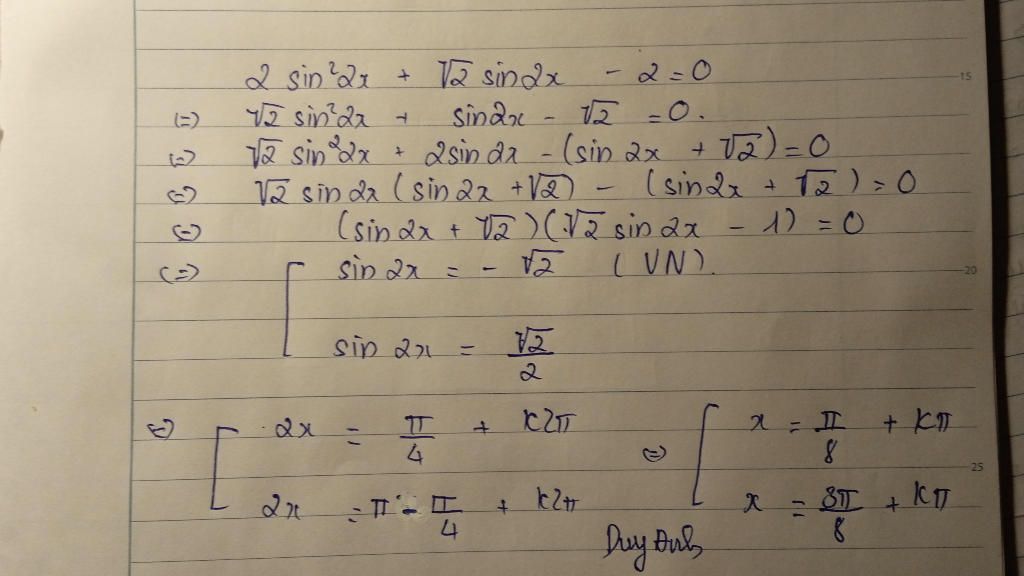 2 sin²2x + √2 sin2x - 2 = 0
(=) √2 sin²2x + sin2x - √2 = 0.
(=) √2 sin²2x + 2sin2x - (sin 2x + √2) = 0
(=) √2 sin 2x (sin 2x + √2) - (sin2x + √2) = 0
(=) (sin 2x + √2)(√2 sin 2x - 1) = 0
(=) [ sin 2x = - √2 (VN).
sin 2x = √2/2
(=) [ 2x = π/4 + k2π (=) [ x = π/8 + kπ
2x = π - π/4 + k2π x = 3π/8 + kπ
Duy Anh
15
20
25